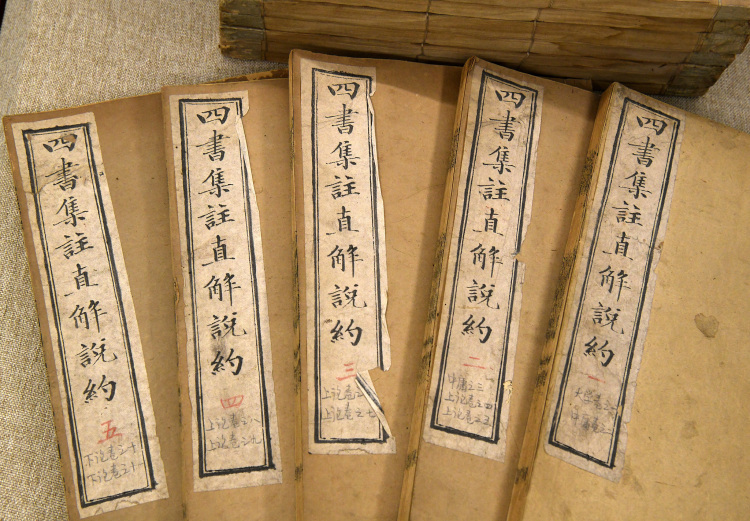 四書集註直解說約
一
四書集註直解說約
二
上论卷之四
上论卷之五
四書集註直解說約
三
上论卷之七
四書集註直解說約
四
上论卷之八
上论卷之九
四書集註直解說約
五
下论卷之十
下论卷之十一